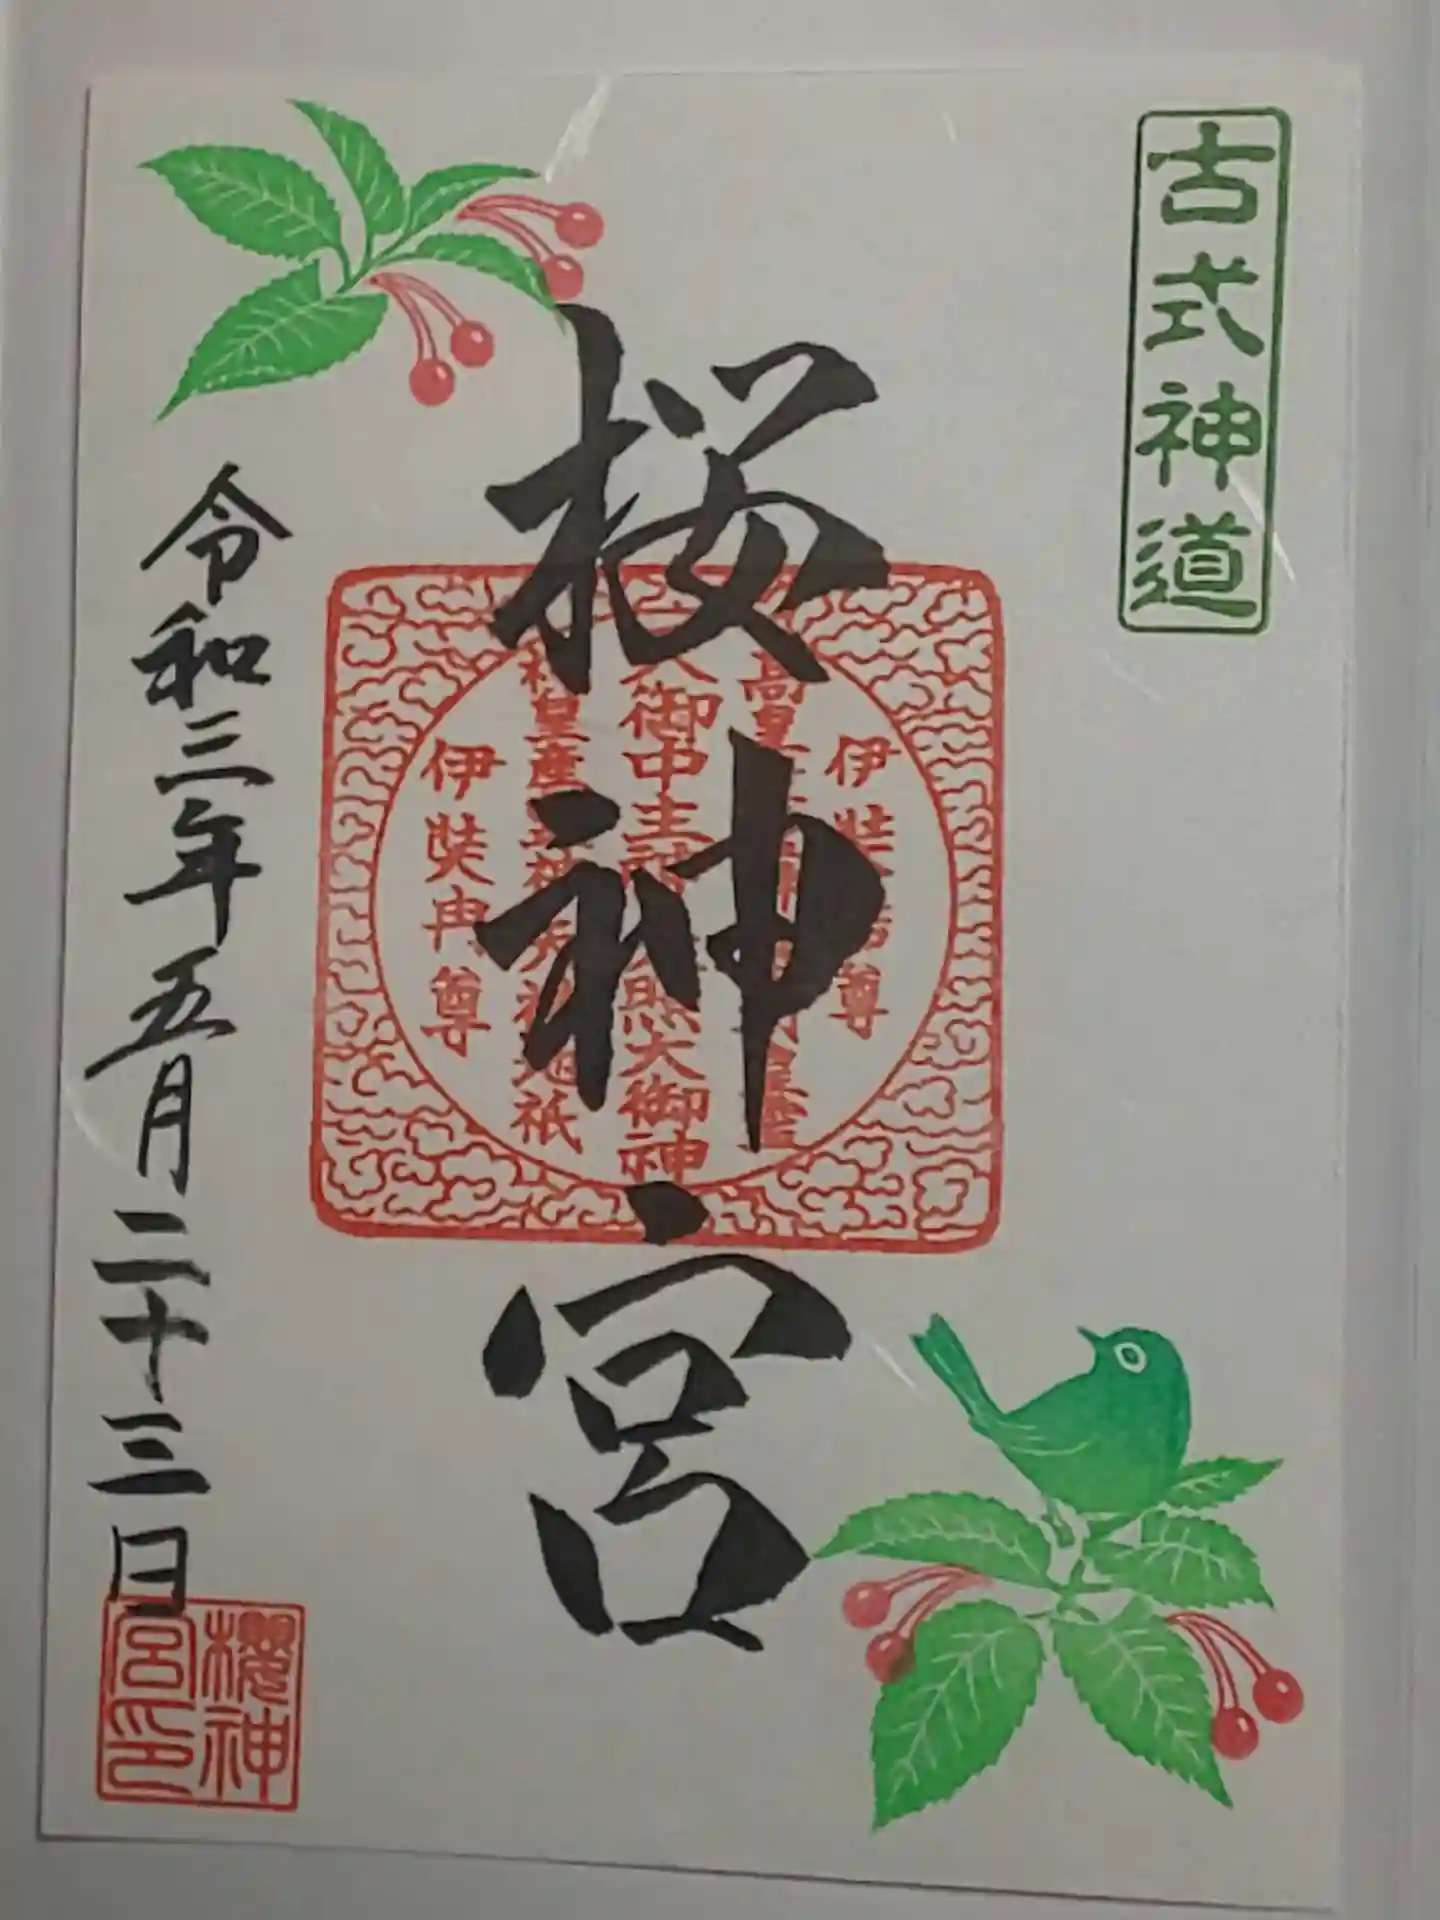 古式神道
桜神宮
伊弉諾尊
高皇
天御中主神 天照大御神
神皇産霊神 天神地祇
伊弉冉尊
令和三年五月二十三日
櫻神
宮印